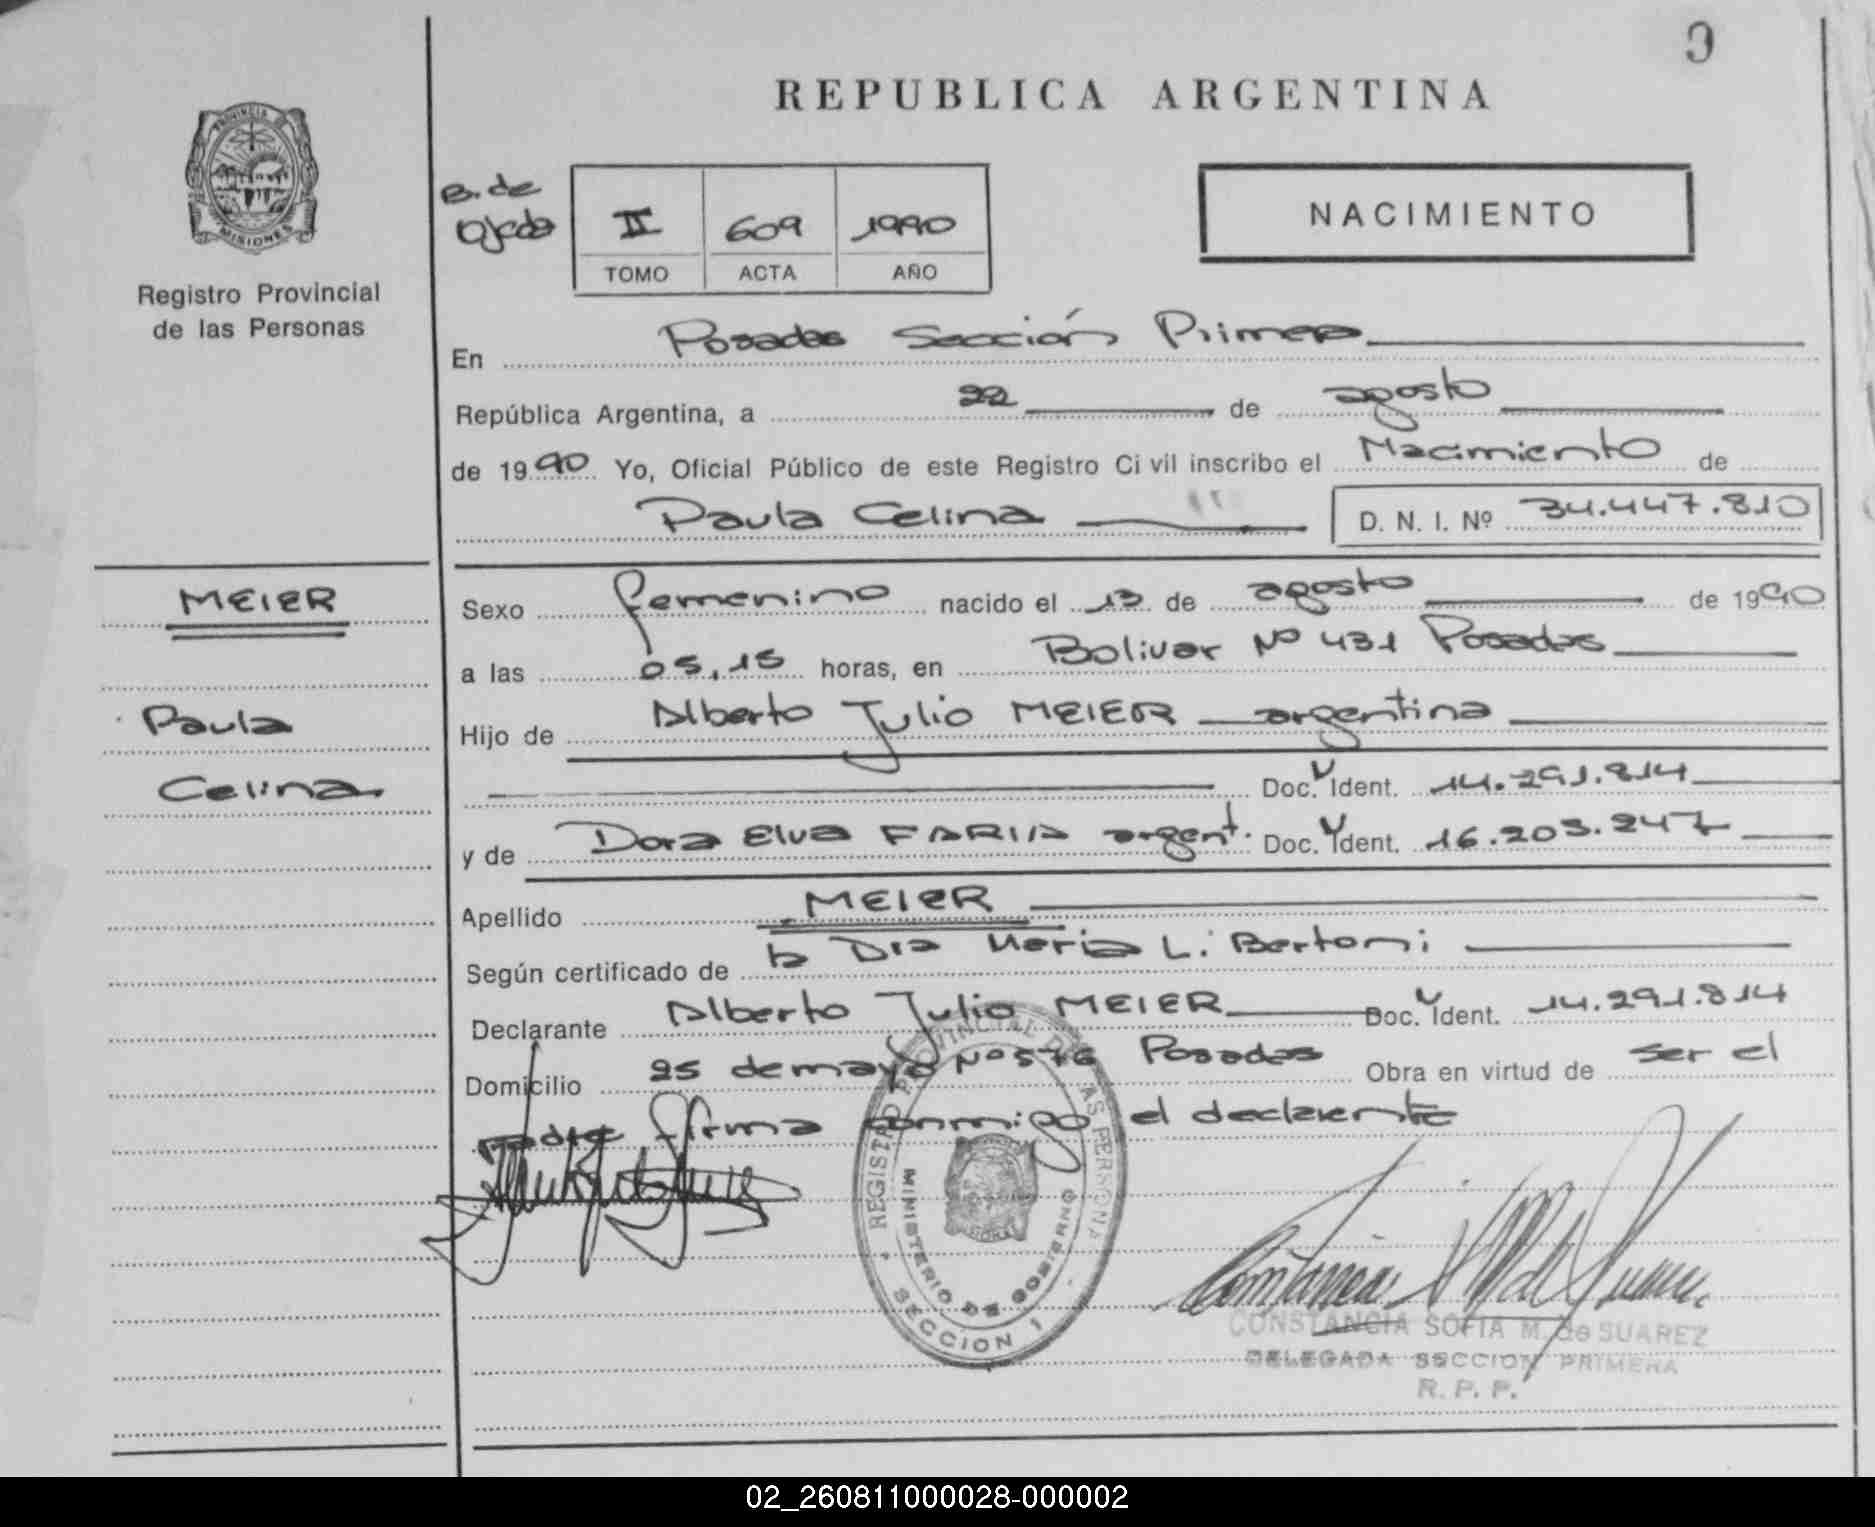 REPUBLICA ARGENTINA
PROVINCIA DE
MISIONES
Registro Provincial
de las Personas
B. de
II 609 1990
TOMO ACTA AÑO
NACIMIENTO
En Posadas Sección Primera
República Argentina, a 22 de agosto
de 1990 Yo, Oficial Público de este Registro Ci vil inscribo el Nacimiento de
Paula Celina D. N. I. Nº 34.447.810
MEIER
Paula
Celina
Sexo femenino nacido el 13 de agosto de 1990
a las 05,15 horas, en Bolivar Nº 431 Posadas
Hijo de Alberto Julio MEIER argentina
Doc. Ident. 14.291.814
y de Dora Elva argent. Doc. Ident. 16.203.247
Apellido MEIER
Según certificado de la Dra Maria L. Bertoni
Declarante Alberto Julio MEIER Doc. Ident. 14.291.814
Domicilio 25 de mayo Nº 576 Posadas Obra en virtud de ser el
padre firma conmigo el declarante
REGISTRO PROVINCIAL DE LAS PERSONAS
MINISTERIO DE GOBIERNO
SECCION 1
CONSTANCIA SOFIA M. de SUAREZ
DELEGADA SECCION PRIMERA
R. P. P.
02_260811000028-000002